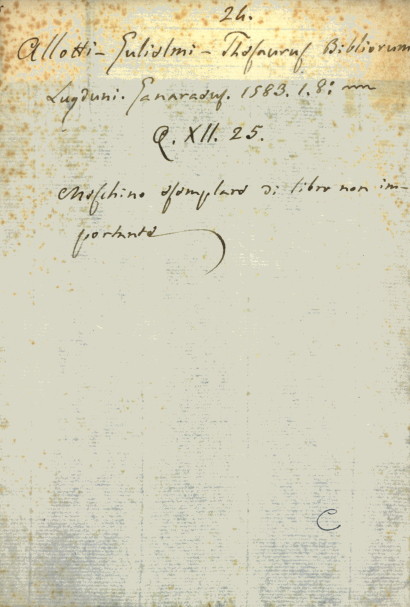 24.
Allotti - Gulielmi - Thesaurus Bibliorum
Lugduni. 1583. 1. 8:
Q. XII. 25.
Meschino esemplare di libro non im-
portante
C